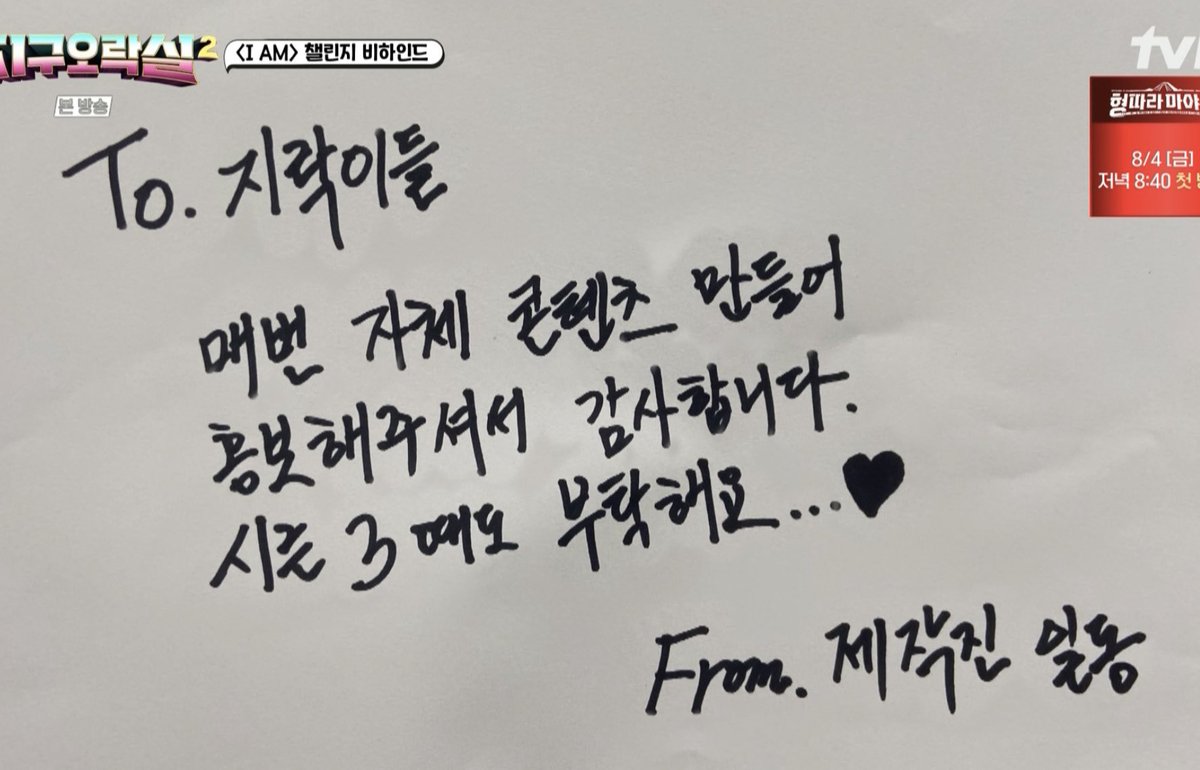 지구오락실2
<I AM> 챌린지 비하인드
본 방송
tvN
형따라 마야
8/4 [금]
저녁 8:40 첫
To. 지락이들
매번 자체 콘텐츠 만들어
홍보해주셔서 감사합니다.
시즌 3 때도 부탁해요...♥
From. 제작진 일동